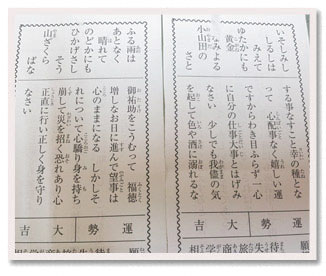 いそしみし
しるしは
みえて
ゆたかにも
黄金
なみよる
小山田の
さと
する事なすこと幸の種とな
って 心配事なく嬉しい運
ですからわき目ふらず一心
に自分の仕事大事とはげみ
なさい 少しでも我儘の気
を起して色や酒に溺れるな
運勢 大吉
ふる雨は
あとなく
晴れて
のどかにも
ひかげさし
そう
山ざくら
ばな
御祐助をこうむって 福徳
増しなお日に進んで望事は
心のままになる しかしそ
れについて心驕り身を持ち
崩して災を招く恐れあり心
正直に行い正しく身を守り
なさい
運勢 大吉